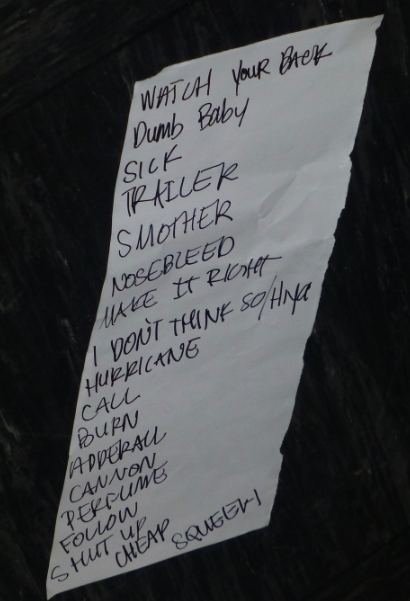 WATCH YOUR BACK
Dumb Baby
SICK
TRAILER
SMOTHER
NOSEBLEED
MAKE IT RIGHT
I DON'T THINK SO/HNGC
HURRICANE
CALL
BURN
ADDERALL
CANNON
PERFUME
FOLLOW
SHUT UP
CHEAP SQUEEKI